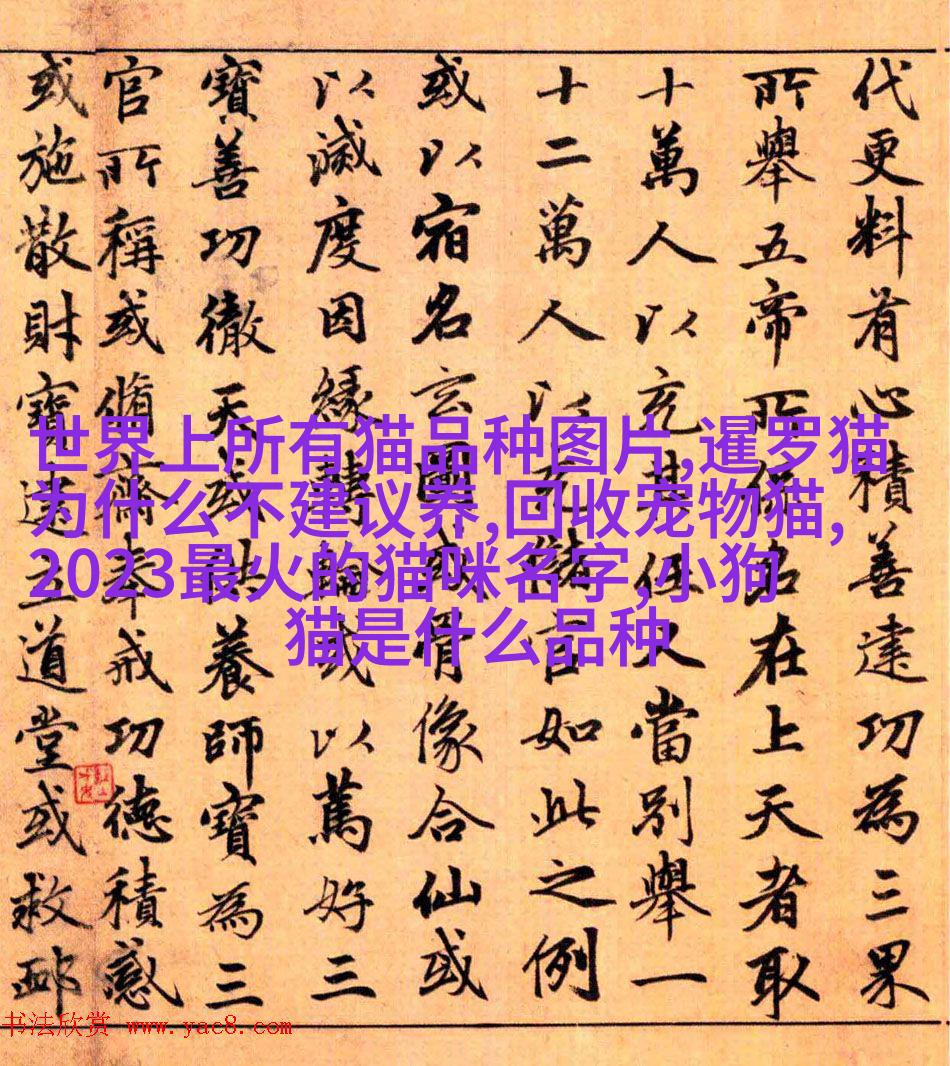 代更料有心積善建功為三果
所舉五帝所保名在上天者取
十萬人以充其任又當別舉一
十二萬人以充儲官如此之例
或以宿名玄圖或骨像合仙或
以滅度因緣轉輪或以篤好三
寶善功徹天或供養師寶為三
官所稱或脩齋奉戒功德積感
或施散財寶造立道堂或救卹
世界上所有猫品种图片,暹罗猫
为什么不建议养,回收宠物猫,
2023最火的猫咪名字,小狗
猫是什么品种
书法欣赏 www.yac8.com